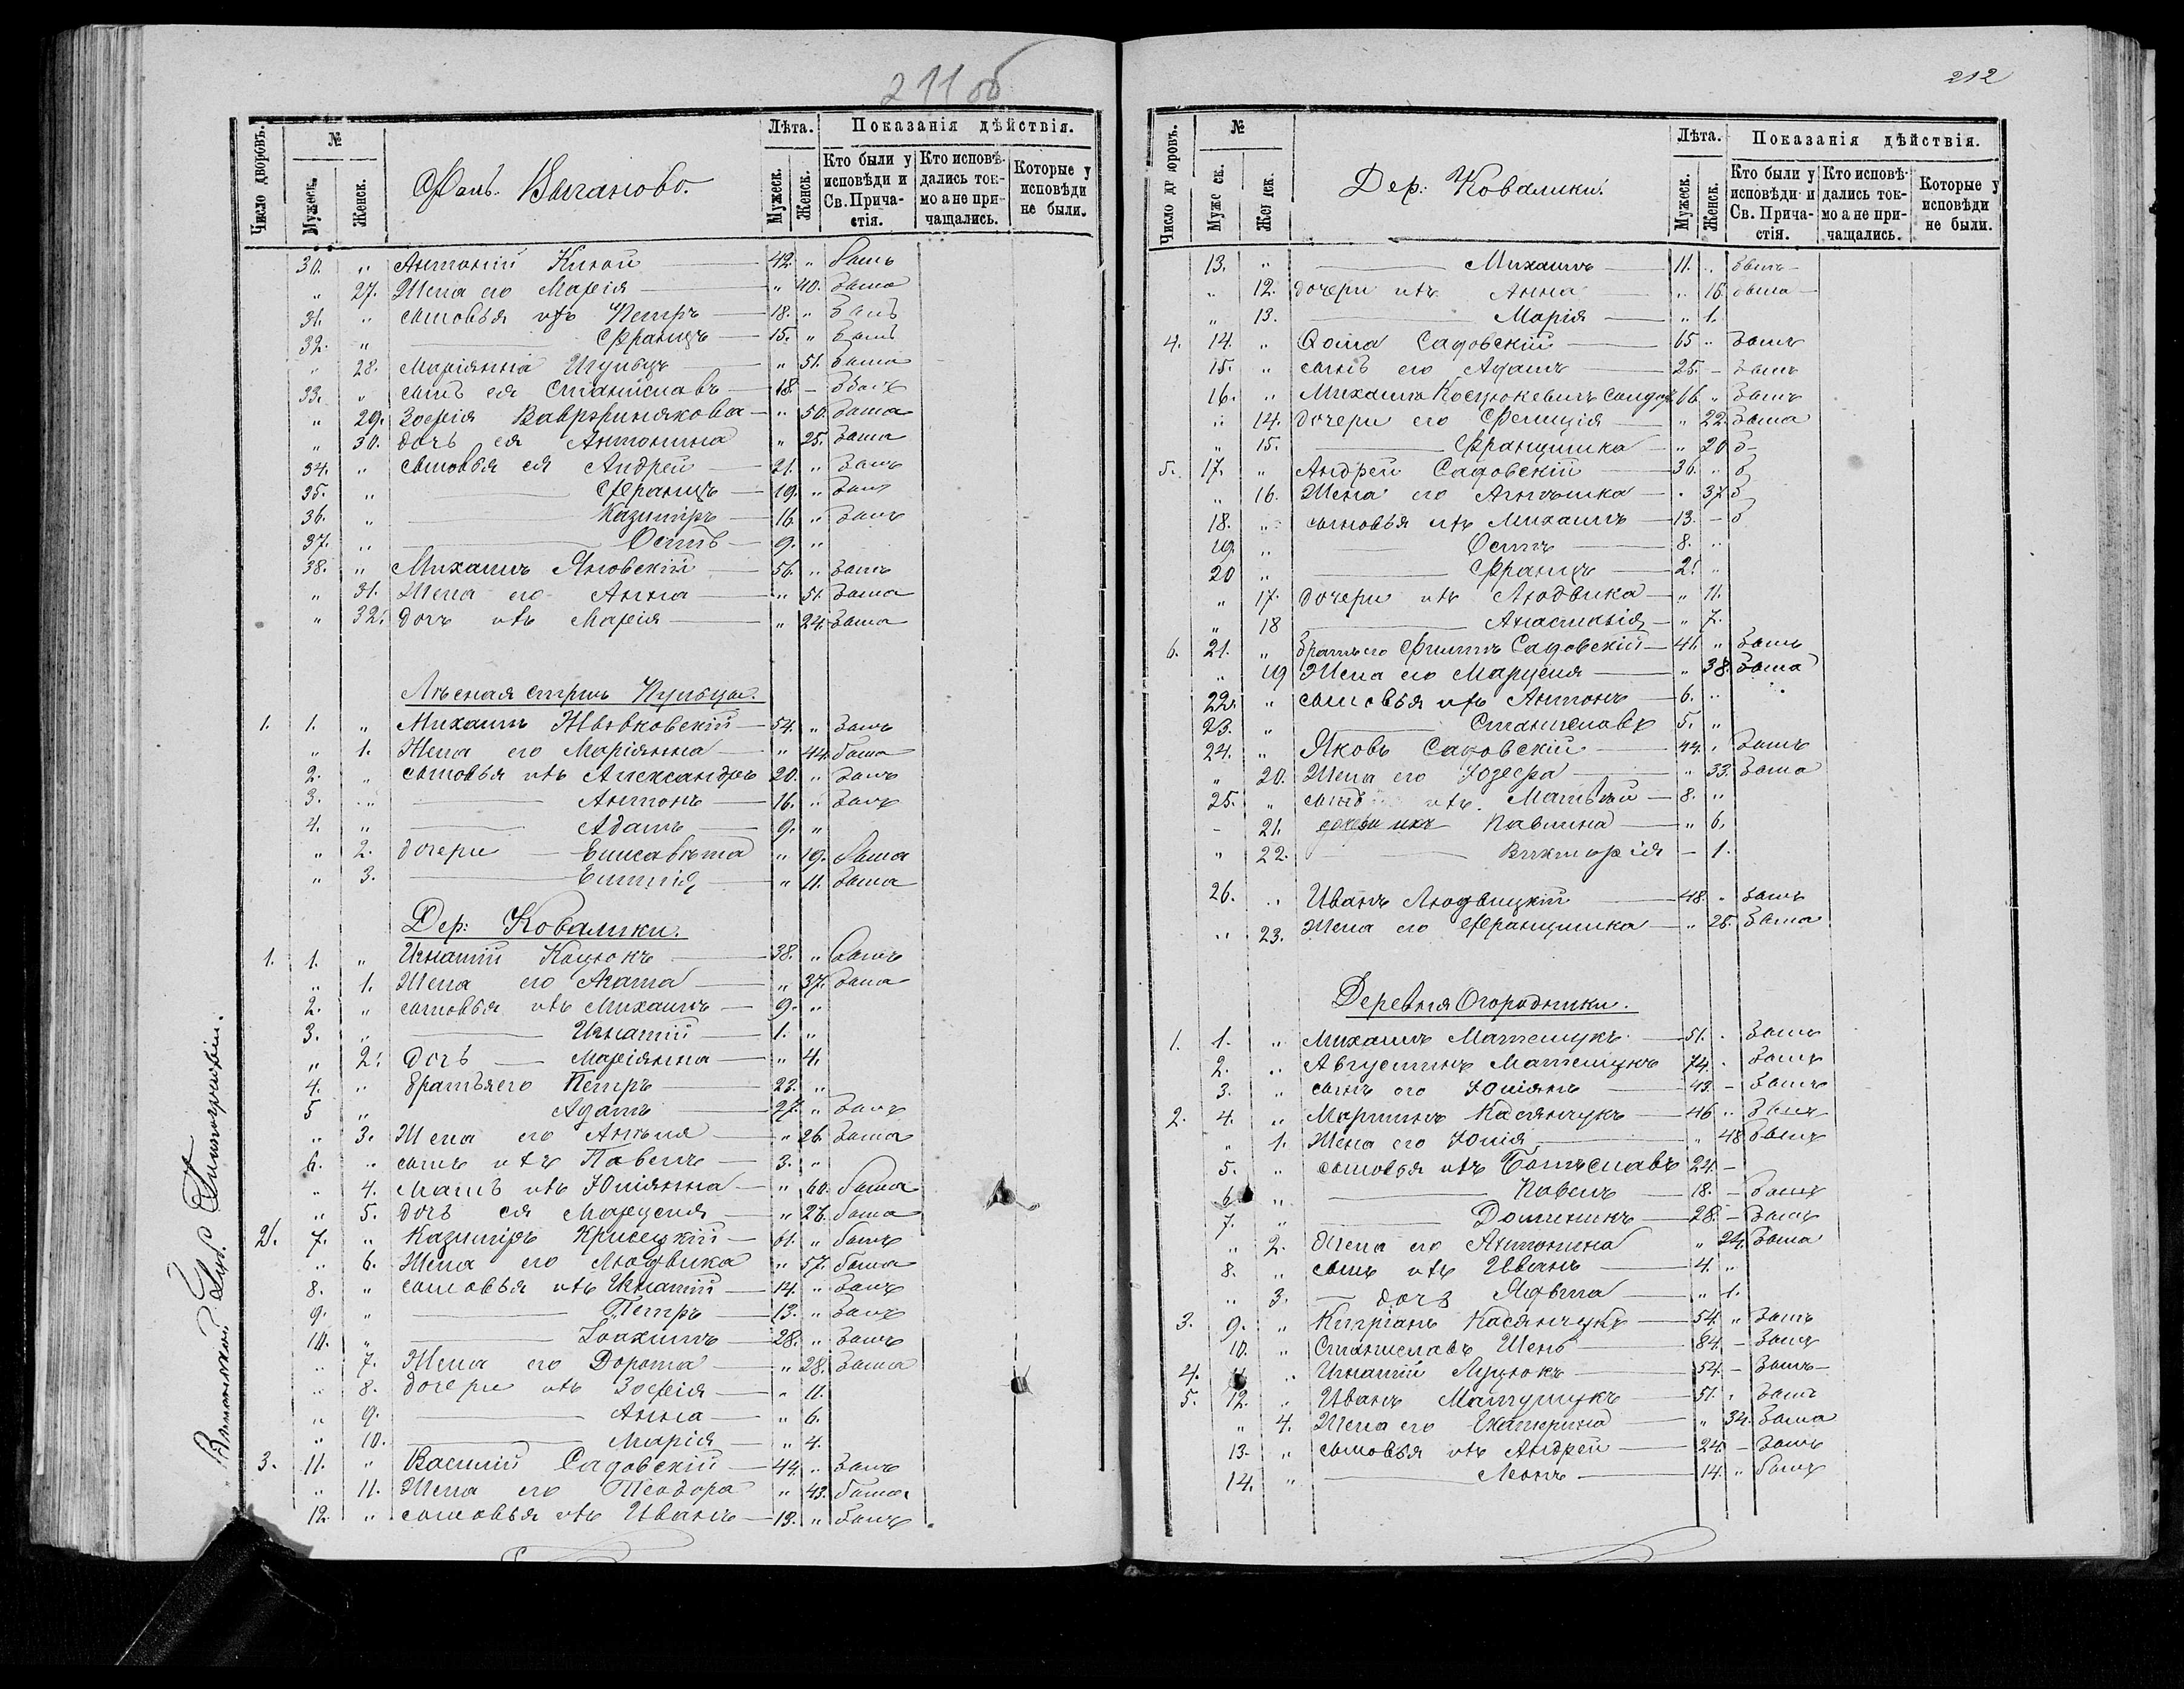 211 об
Число дворовъ.
№
Мужеск.
Женск.
Фоль. Ваганово.
Лѣта.
Мужеск.
Женск.
Показанія дѣйствія.
Кто были у исповѣди и Св. Причастія.
Кто исповѣдались токмо а не причащались.
Которые у исповѣди не были.
30. „ Антоній 42. „ былъ
„ 27. Жена его Марія „ 40. была
31. „ сыновья ихъ Петръ 18. „ былъ
32. „ Францъ 15. „ былъ
„ 28. Маріянна „ 51. была
33. „ сынъ ея Станиславъ 18. – былъ
„ 29. Зофія Вавржинякова „ 50. была
„ 30. дочь ея Антонина „ 25. была
34. „ сыновья ея Андрей 21. „ былъ
35. „ Францъ 19. „ былъ
36. „ Казиміръ 16. „ былъ
37. „ Осипъ 9. „
38. „ Михаилъ Яновскій 56. „ былъ
„ 31. Жена его Анна „ 51. была
„ 32. дочь ихъ Марія „ 24. была
Лѣсная стражъ
1. 1. „ Михаилъ 54. „ былъ
„ 1. Жена его Маріянна „ 44. была
2. „ сыновья ихъ Александръ 20. „ былъ
3. „ Антонъ 16. „ былъ
4. „ Адамъ 9. „
„ 2. дочери Елисавета „ 19. была
„ 3. Емилія „ 11. была
Дер: Ковалики.
1. 1. „ Игнатій Коцюкъ 38. „ былъ
„ 1. Жена его Агата „ 37. была
2. „ сыновья ихъ Михаилъ 9. „
3. „ Игнатій 1. „
„ 2. дочь Маріянна „ 4.
4. „ братья его Петръ 23. „
5 „ Адамъ 27. „ былъ
„ 3. Жена его Анеля „ 26. была
6. „ сынъ ихъ Павелъ 3. „
„ 4. мать ихъ Юліянна „ 60. была
„ 5. дочь ея Марцеля „ 26. была
2. 7. „ Казиміръ Крисецкій 61. „ былъ
„ 6. Жена его Людвика „ 57. была
8. „ сыновья ихъ Игнатій 14. „ былъ
9. „ Петръ 13. „ былъ
10. „ Іоахимъ 28. „ былъ
„ 7. Жена его Дорота „ 28. была
„ 8. дочери ихъ Зофія „ 11.
„ 9. Анна „ 6.
„ 10. Марія „ 4.
3. 11. „ Василій Садовскій 44. „ былъ
„ 11. Жена его Теодора „ 43. была
12. „ сыновья ихъ Иванъ 13. „ былъ
212
Число дворовъ.
№
Мужеск.
Женск.
Дер: Ковалики.
Лѣта.
Мужеск.
Женск.
Показанія дѣйствія.
Кто были у исповѣди и Св. Причастія.
Кто исповѣдались токмо а не причащались.
Которые у исповѣди не были.
13. „ Михаилъ 11. „ былъ
„ 12. дочери ихъ Анна „ 16. была
„ 13. Марія „ 1.
4. 14. „ Ѳома Садовскій 65 „ былъ
15. „ сынъ его Адамъ 25. – былъ
16. „ Михаилъ Костюкевичъ 66 „ былъ
„ 14. дочери его Фелиція „ 22. была
„ 15. Францишка „ 20 б
5. 17. „ Андрей Садовскій 36. „ б
„ 16. Жена его Агнѣшка „ 37 б
18. „ сыновья ихъ Михаилъ 13. – б
19. „ Осипъ 8. „
20 „ Францъ 2. „
„ 17. дочери ихъ Людвика „ 11.
„ 18 Анастазія „ 7.
6. 21. „ братъ его Филипъ Садовскій 41. „ былъ
„ 19 Жена его Марцеля „ 38. была
22. „ сыновья ихъ Антонъ 6. „
23. „ Станиславъ 5. „
24. „ Яковъ Садовскій 44. „ былъ
„ 20. Жена его Юзефа „ 33. была
25. „ сынъ ихъ Матвѣй 8. „
– 21. дочери ихъ Павлина „ 6.
„ 22. Викторія – 1.
26. „ Иванъ Людвицкій 48. „ былъ
„ 23. Жена его Францишка „ 25. была
Деревня Огородники.
1. 1. „ Михаилъ Матешукъ 51. „ былъ
2. „ Августинъ Матешукъ 74. „ былъ
3. „ сынъ его Юліянъ 43. – былъ
2. 4. „ Мартинъ Касянчукъ 46 „ былъ
„ 1. Жена его Юлія „ 48 былъ
5. „ сыновья ихъ Болеславъ 24. –
6 „ Павелъ 18. – былъ
7. „ Доминикъ 28. – былъ
„ 2. Жена его Антонина „ 24. была
8. „ сынъ ихъ Иванъ 4. „
„ 3. дочь Ядвига „ 1.
3. 9. „ Кипріанъ Касянчукъ 54. „ былъ
10. „ Станиславъ Шень 84. – былъ
4. 11 „ Игнатій Луцюкъ 54. – былъ
5. 12. „ Иванъ 51. „ былъ
„ 4. Жена его Екатерина „ 34. была
13. „ сыновья ихъ Андрей 24. – былъ
14. „ Леонъ 14. „ былъ